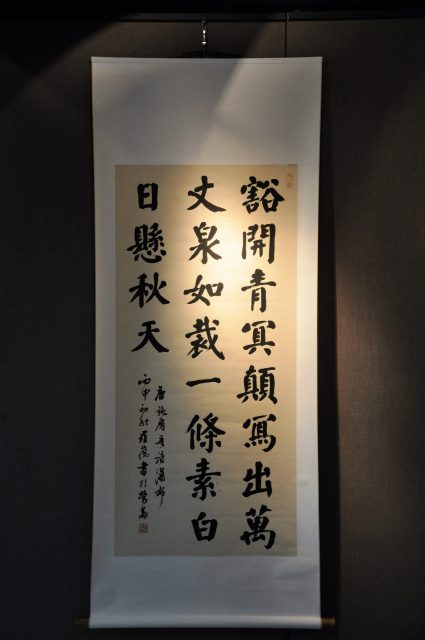 豁開青冥顛寫出萬
丈泉如裁一條素白
日懸秋天
唐施肩吾詩瀑布
丙申初秋